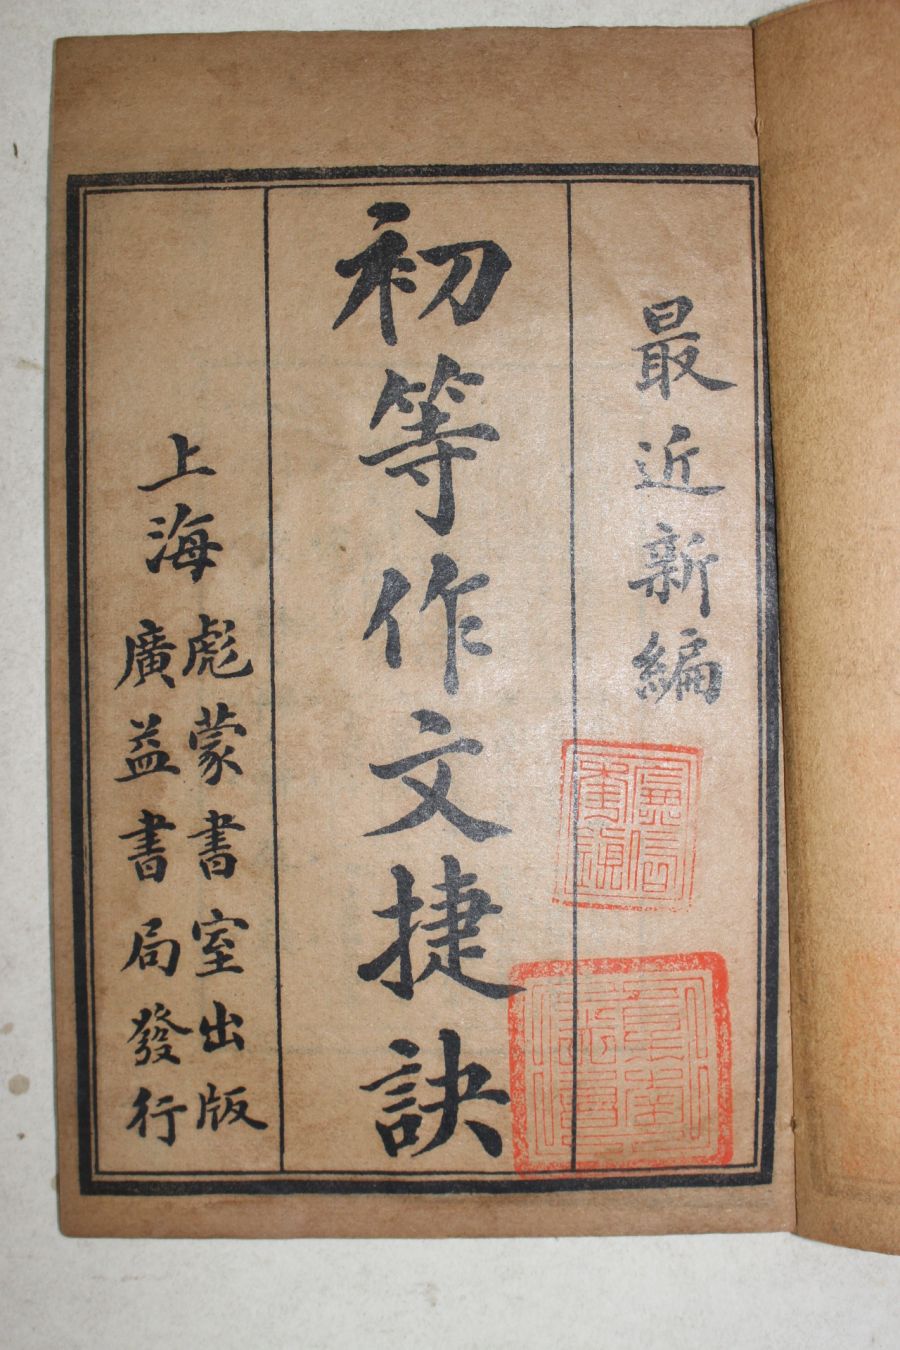 最近新編
初等作文捷訣
上海
彪蒙書室出版
廣益書局發行